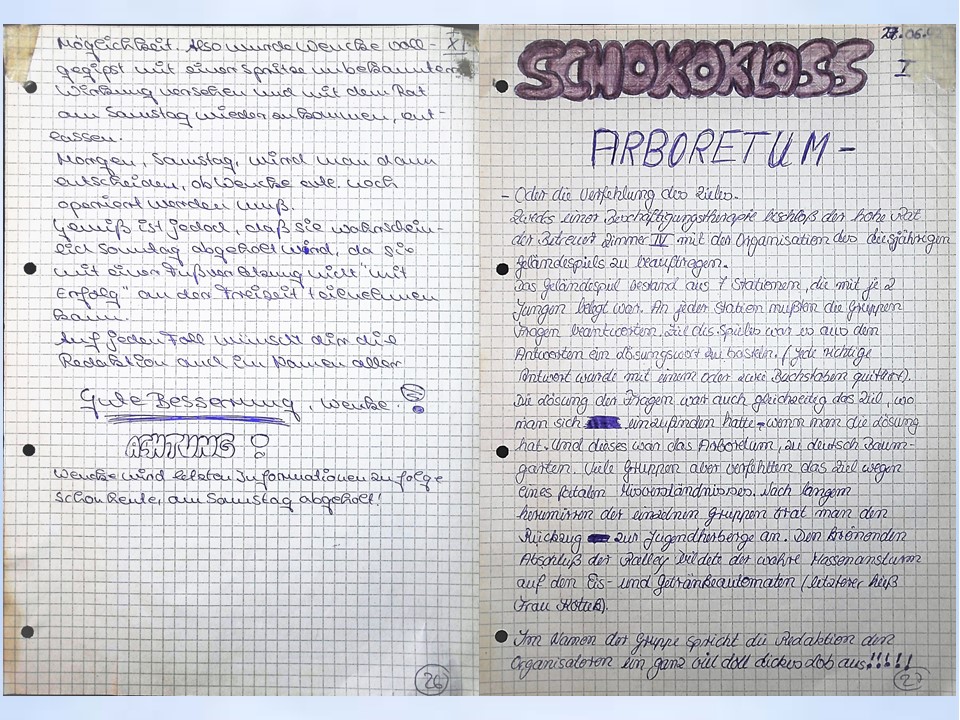 Möglichkeit. Also wurde Wencke voll-
XI
gegipst mit einer Spritze unbekannter
Wirkung versehen und mit dem Rat
am Samstag wieder zu kommen, ent-
lassen.
Morgen, Samstag, wird man dann
entscheiden, ob Wencke evtl. noch
operiert werden muß.
Gewiß ist jedoch, daß sie warschein-
lich Samstag abgeholt wird, da sie
mit einer Fußverletzung nicht "mit
Erfolg" an der Freizeit teilnehmen
kann.
Auf jeden Fall wünscht dir die
Redaktion auch im Namen aller
Gute Besserung, Wencke.
ACHTUNG!
Wencke wird letzten Informationen zufolge
schon heute, am Samstag abgeholt!
26
27.06.
SCHOKOKLOSS
I
ARBORETUM -
- Oder die Verfehlung des Zieles.
Zwecks einer Beschäftigungstherapie beschloß der hohe Rat
der Betreuer Zimmer IV mit der Organisation des diesjährigen
Geländespiels zu beauftragen.
Das Geländespiel bestand aus 7 Stationen, die mit je 2
Jungen belegt war. An jeder Station mußten die Gruppen
Fragen beantworten. Ziel des Spieles war es aus den
Antworten ein Lösungswort zu basteln. (Jede richtige
Antwort wurde mit einem oder zwei Buchstaben quittiert).
Die Lösung der Fragen war auch gleichzeitig das Ziel, wo
man sich einzufinden hatte, wenn man die Lösung
hat. Und dieses war das Arboretum, zu deutsch Baum-
garten. Viele Gruppen aber verfehlten das Ziel wegen
eines fatalen Missverständnisses. Nach langem
herumirren der einzelnen Gruppen trat man den
Rückzug zur Jugendherberge an. Den krönenden
Abschluß der Ralley bildete der wahre Massenansturm
auf den Eis- und Getränkeautomaten (letzterer hieß
Frau Kotuß).
Im Namen der Gruppe spricht die Redaktion den
Organisatoren ein ganz viel doll dickes Lob aus!!!!!
27